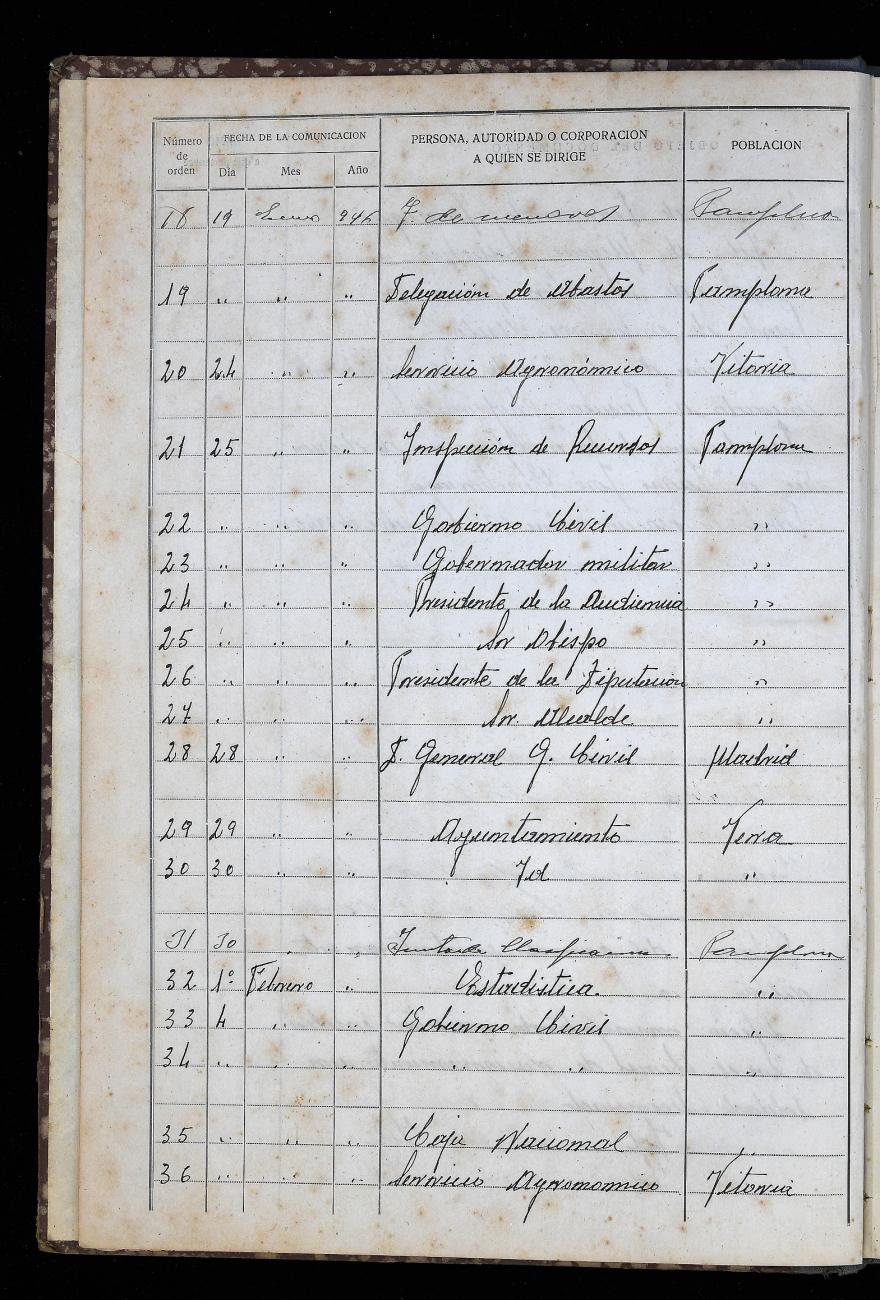 Número de orden FECHA DE LA COMUNICACION PERSONA, AUTORIDAD O CORPORACION A QUIEN SE DIRIGE POBLACION
Dia Mes Año
18 19 Enero 946 J. de menores Pamplona
19 " " " Delegación de Abastos Pamplona
20 24 " " Servicio Agronómico Vitoria
21 25 " " Inspección de Recursos Pamplona
22 " " " Gobierno Civil "
23 " " " Gobernador militar "
24 " " " Presidente de la Audiencia "
25 " " " Sr Obispo "
26 " " " Presidente de la Diputacion "
27 " " " Sr. Alcalde "
28 28 " " D. General G. Civil Madrid
29 29 " " Ayuntamiento Vera
30 30 " " Id "
31 30 " " Junta de Pamplona
32 1º Febrero " Estadistica. "
33 4 " " Gobierno Civil "
34 " " " " " "
35 " " " Caja Nacional "
36 " " " Servicio Agronomico Vitoria